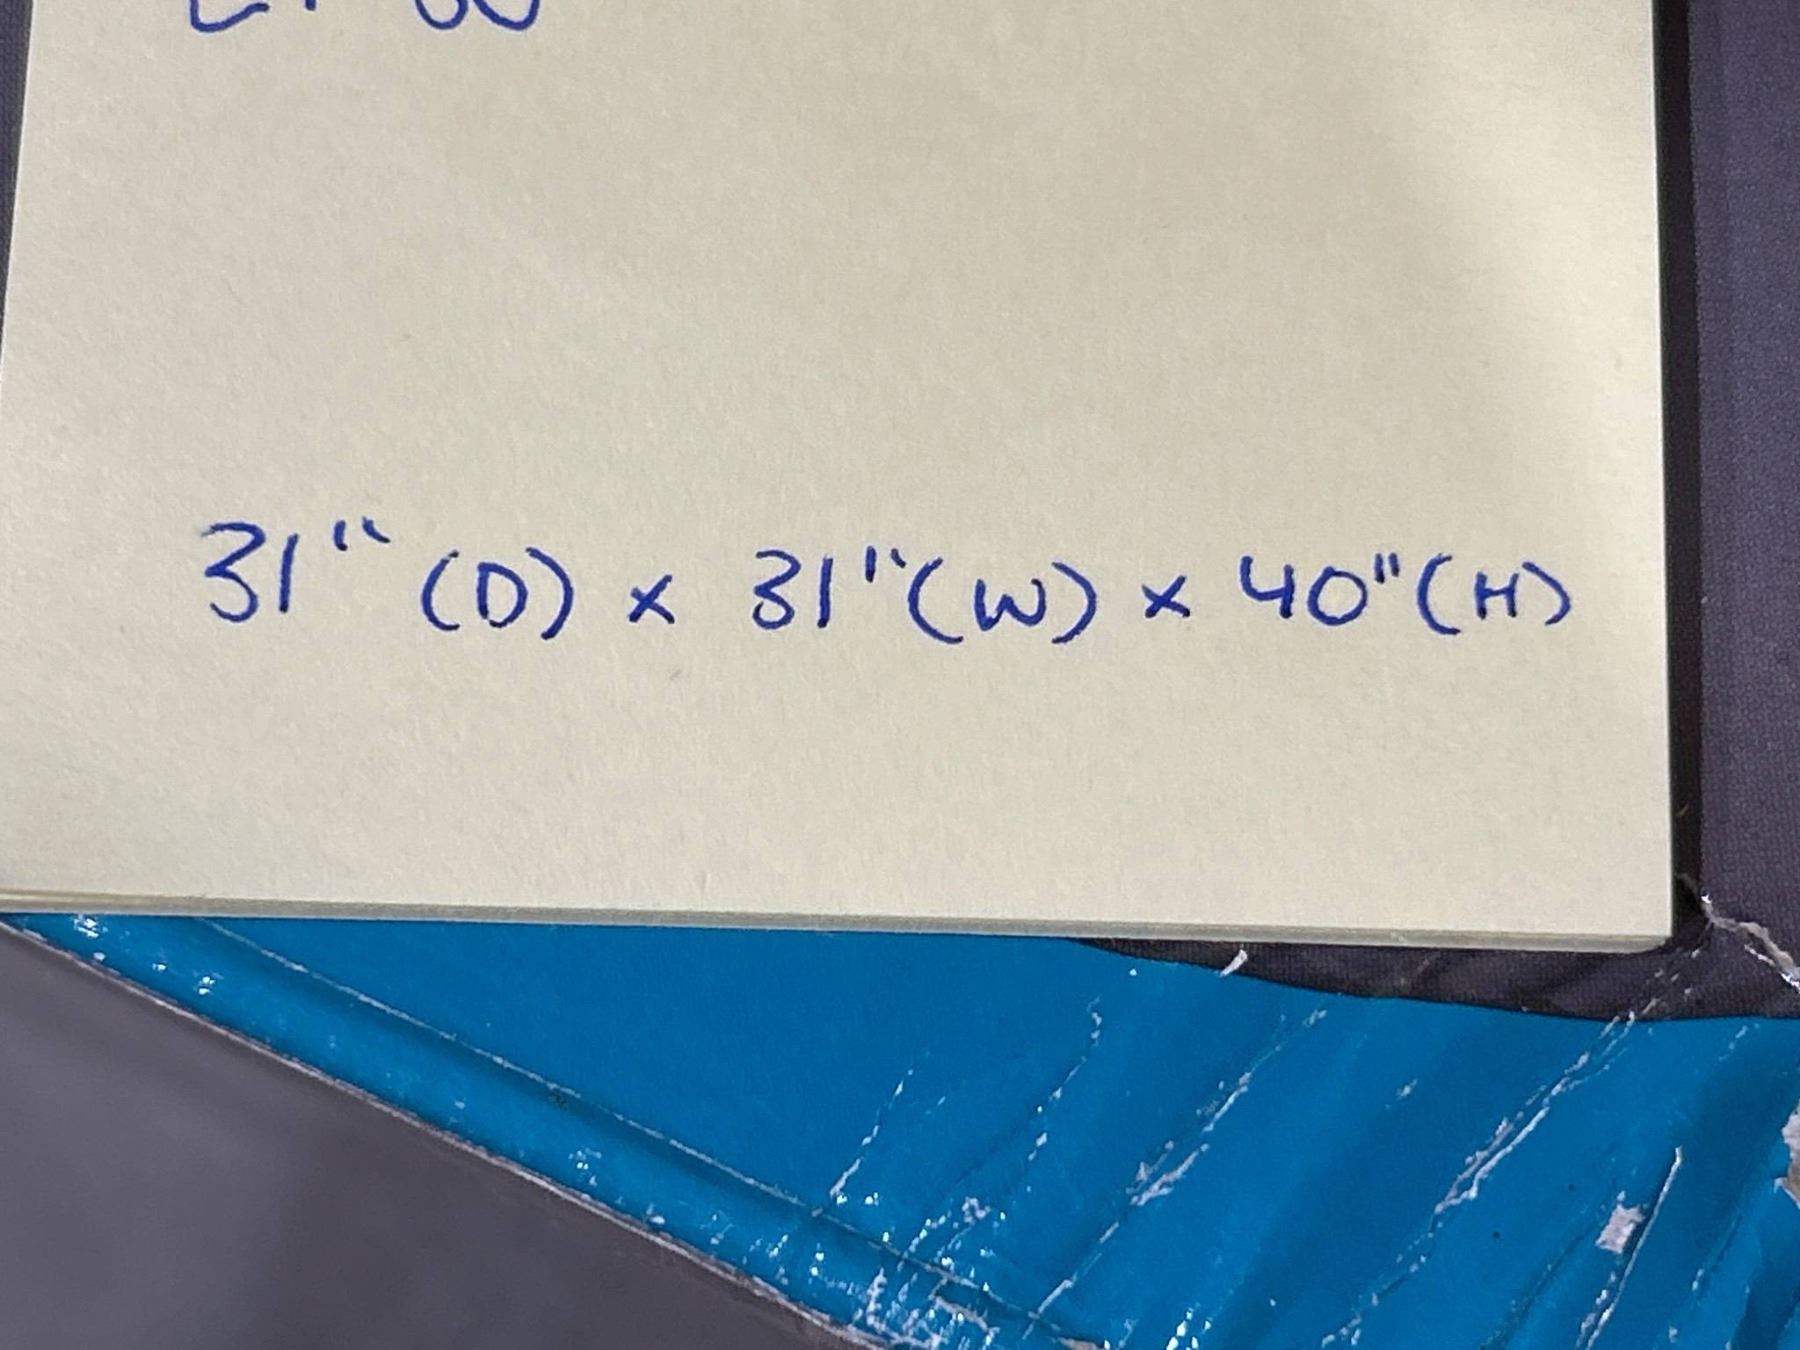 31" (D) x 31" (W) x 40" (H)